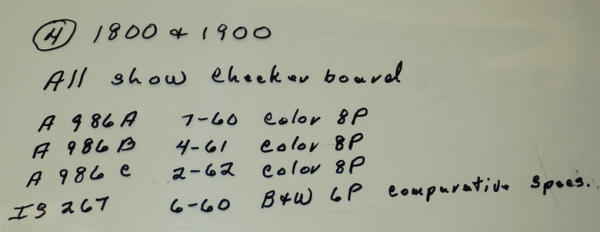 (4) 1800 & 1900
All show checker board
A 986A 7-60 Color 8P
A 986B 4-61 Color 8P
A 986C 2-62 Color 8P
IS 267 6-60 B&W 6P comparative specs.